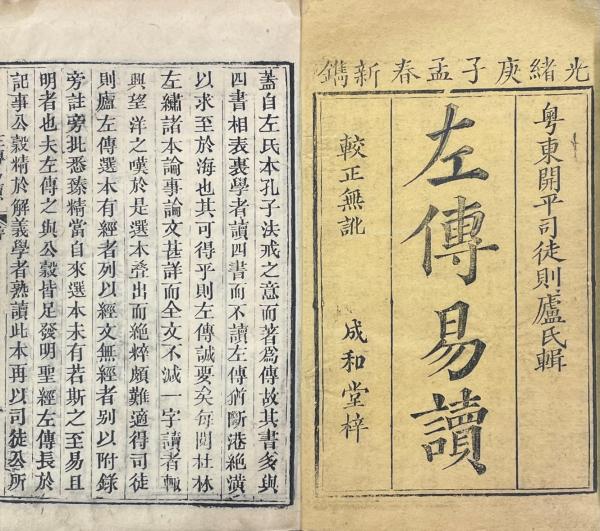 光緒庚子孟春新鐫
粵東開平司徒則廬氏輯
左傳易讀
較正無訛
成和堂梓
蓋自左氏本孔子法戒之意而著為傳故其書多與
四書相表裏學者讀四書而不讀左傳猶斷港絶潢
以求至於海也其可得乎則左傳誠要矣每閱杜林
左繡諸本論事論文甚詳而全文不減一字讀者輒
興望洋之嘆於是選本叠出而絶粹頗難適得司徒
則廬左傳選本有經者列以經文無經者別以附錄
旁註旁批悉臻精當自來選本未有若斯之至易且
明者也夫左傳之與公穀皆足發明聖經左傳長於
記事公穀精於解義學者熟讀此本再以司徒公所